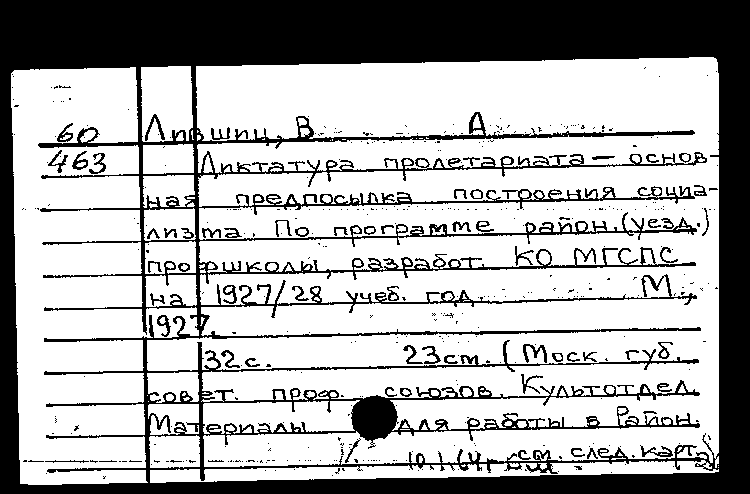 60 Лившиц, В А
463 Диктатура пролетариата — основ-
ная предпосылка построения социа-
лизма. По программе район. (уезд.)
профшколы, разработ. КО МГСПС
на 1927/28 учеб. год. М.,
1927.
32 с. 23 см. (Моск. губ.
совет. проф. союзов. Культотдел.
Материалы для работы в Район.
10.1.64 г см. след. карт